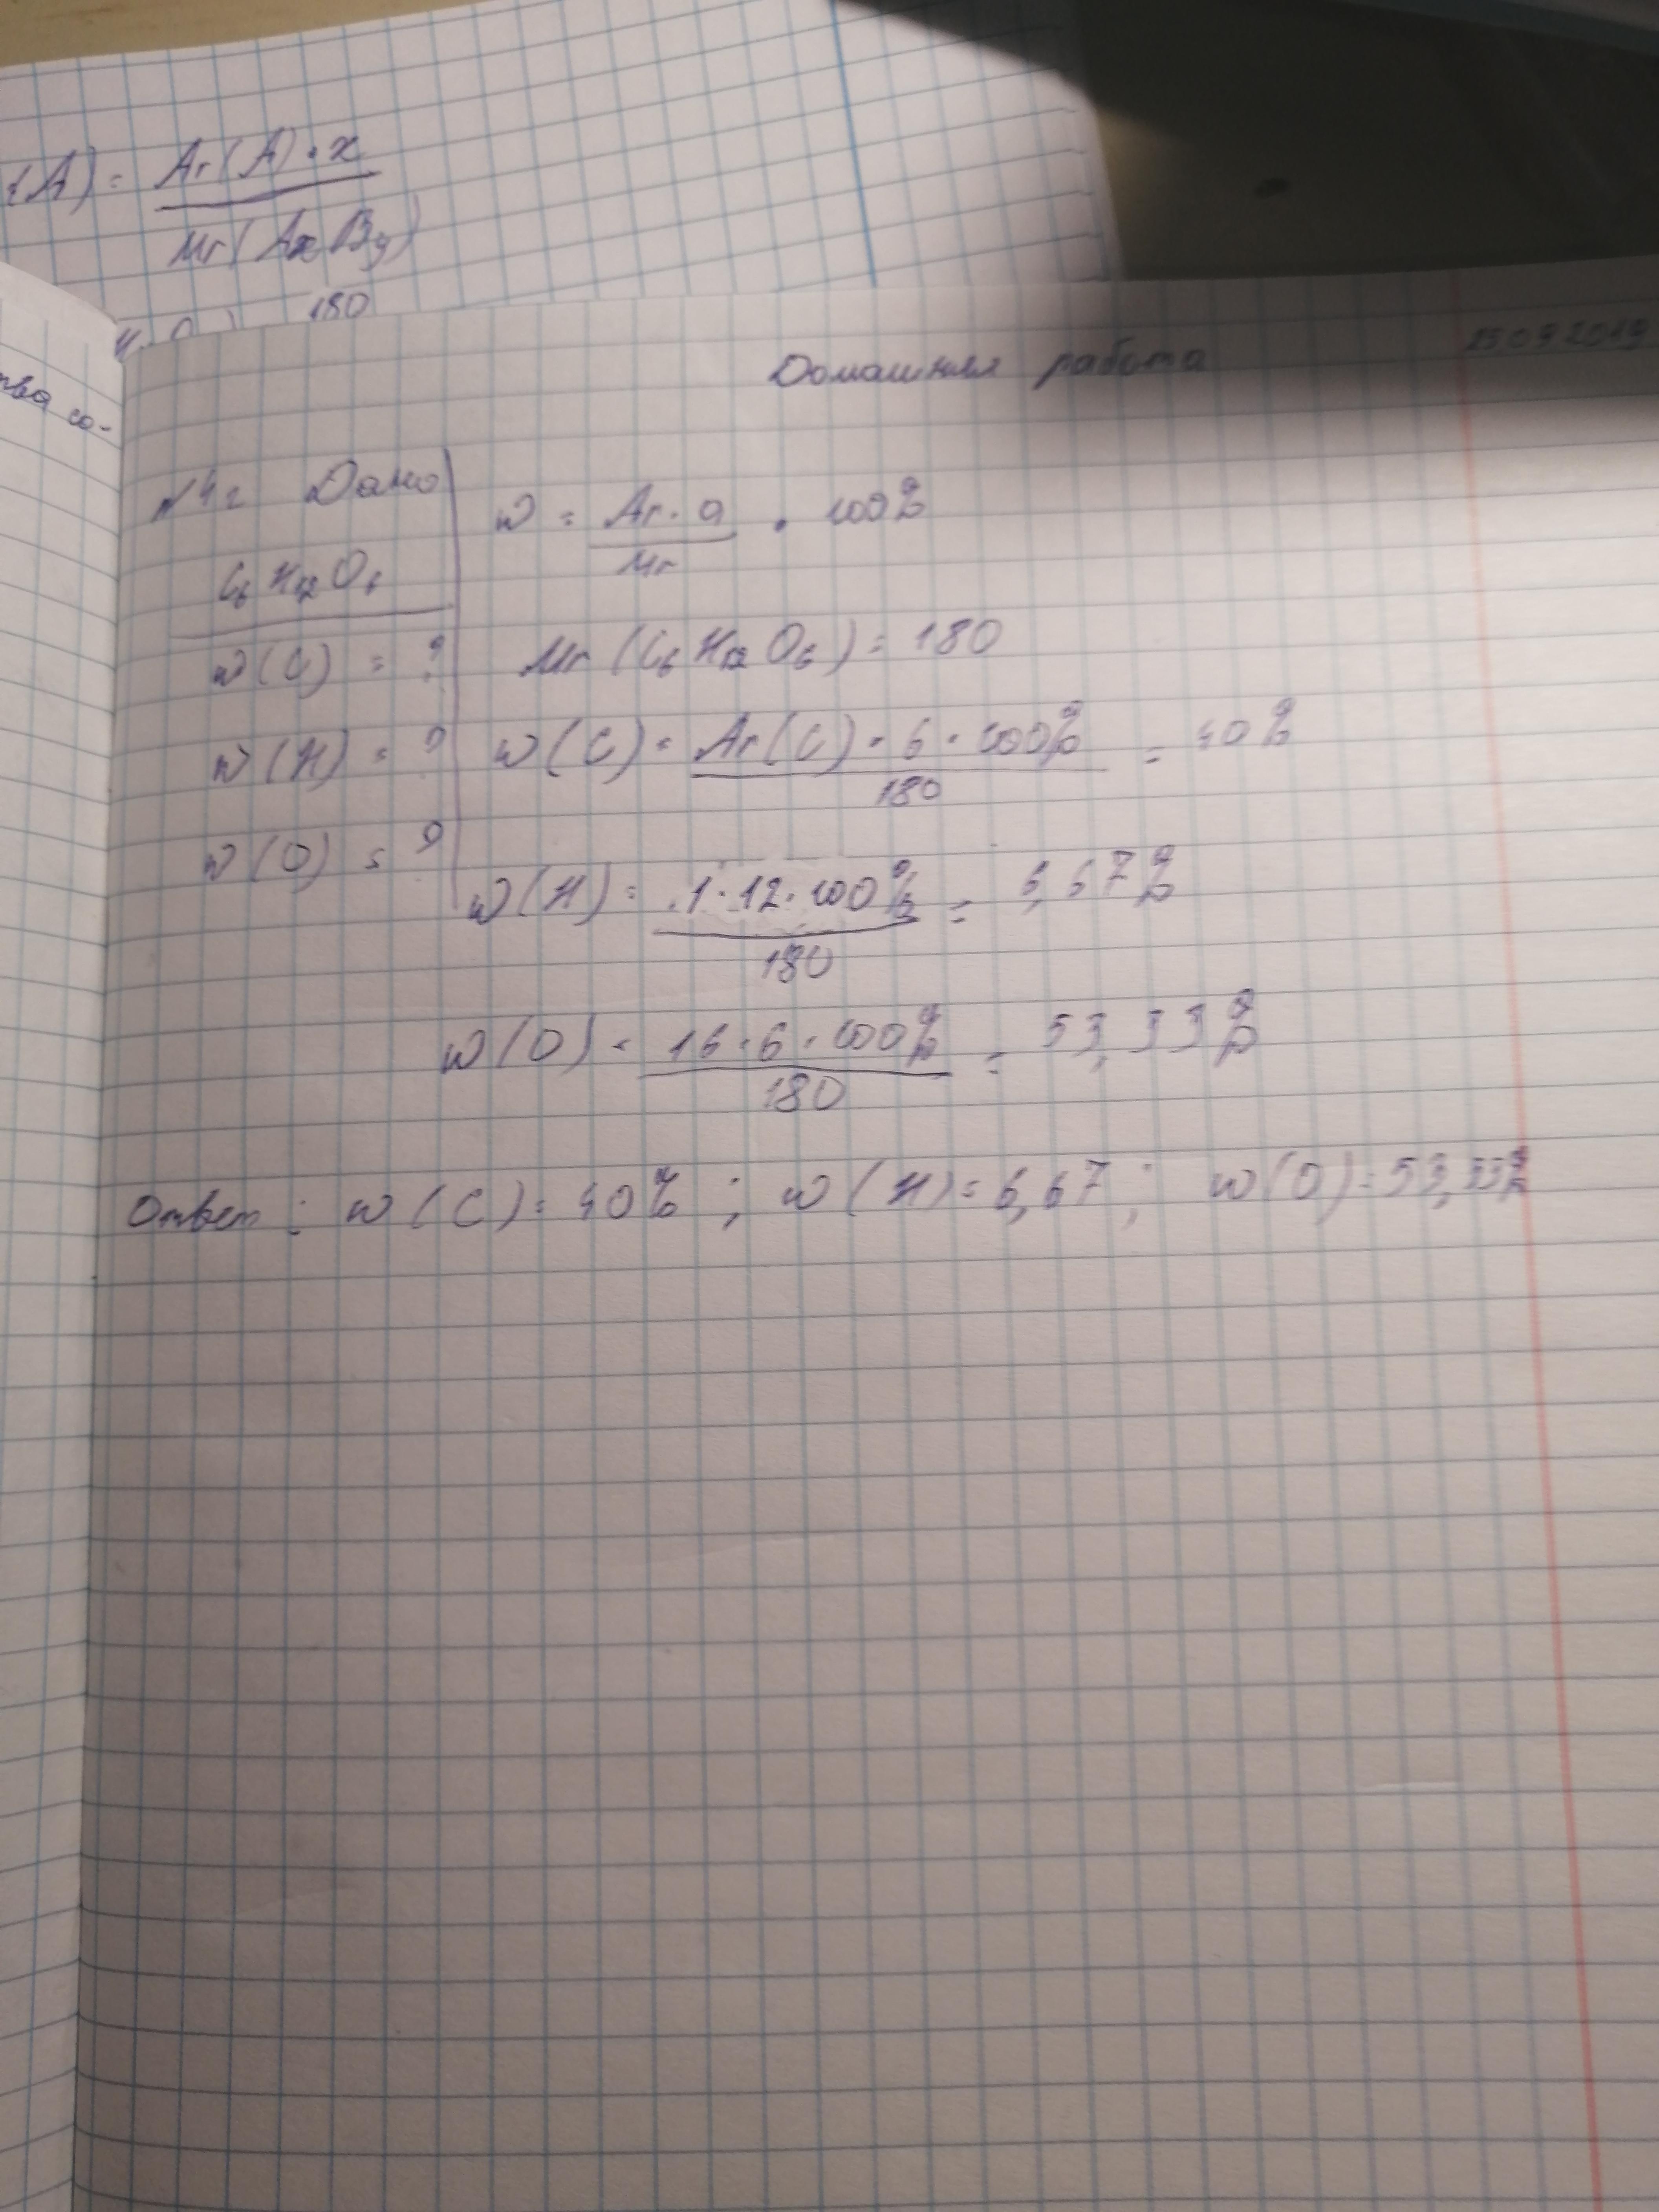 (A) = Ar(A) · x
Mr(AxBy)
180
тва со-
Домашняя работа 15.09.2019
№4г Дано
C6H12O6
w(C) = ?
w(H) = ?
w(O) = ?
w = Ar · a / Mr · 100%
Mr(C6H12O6) = 180
w(C) = Ar(C) · 6 · 100% / 180 = 40%
w(H) = 1 · 12 · 100% / 180 = 6,67%
w(O) = 16 · 6 · 100% / 180 = 53,33%
Ответ: w(C) = 40%; w(H) = 6,67; w(O) = 53,33%